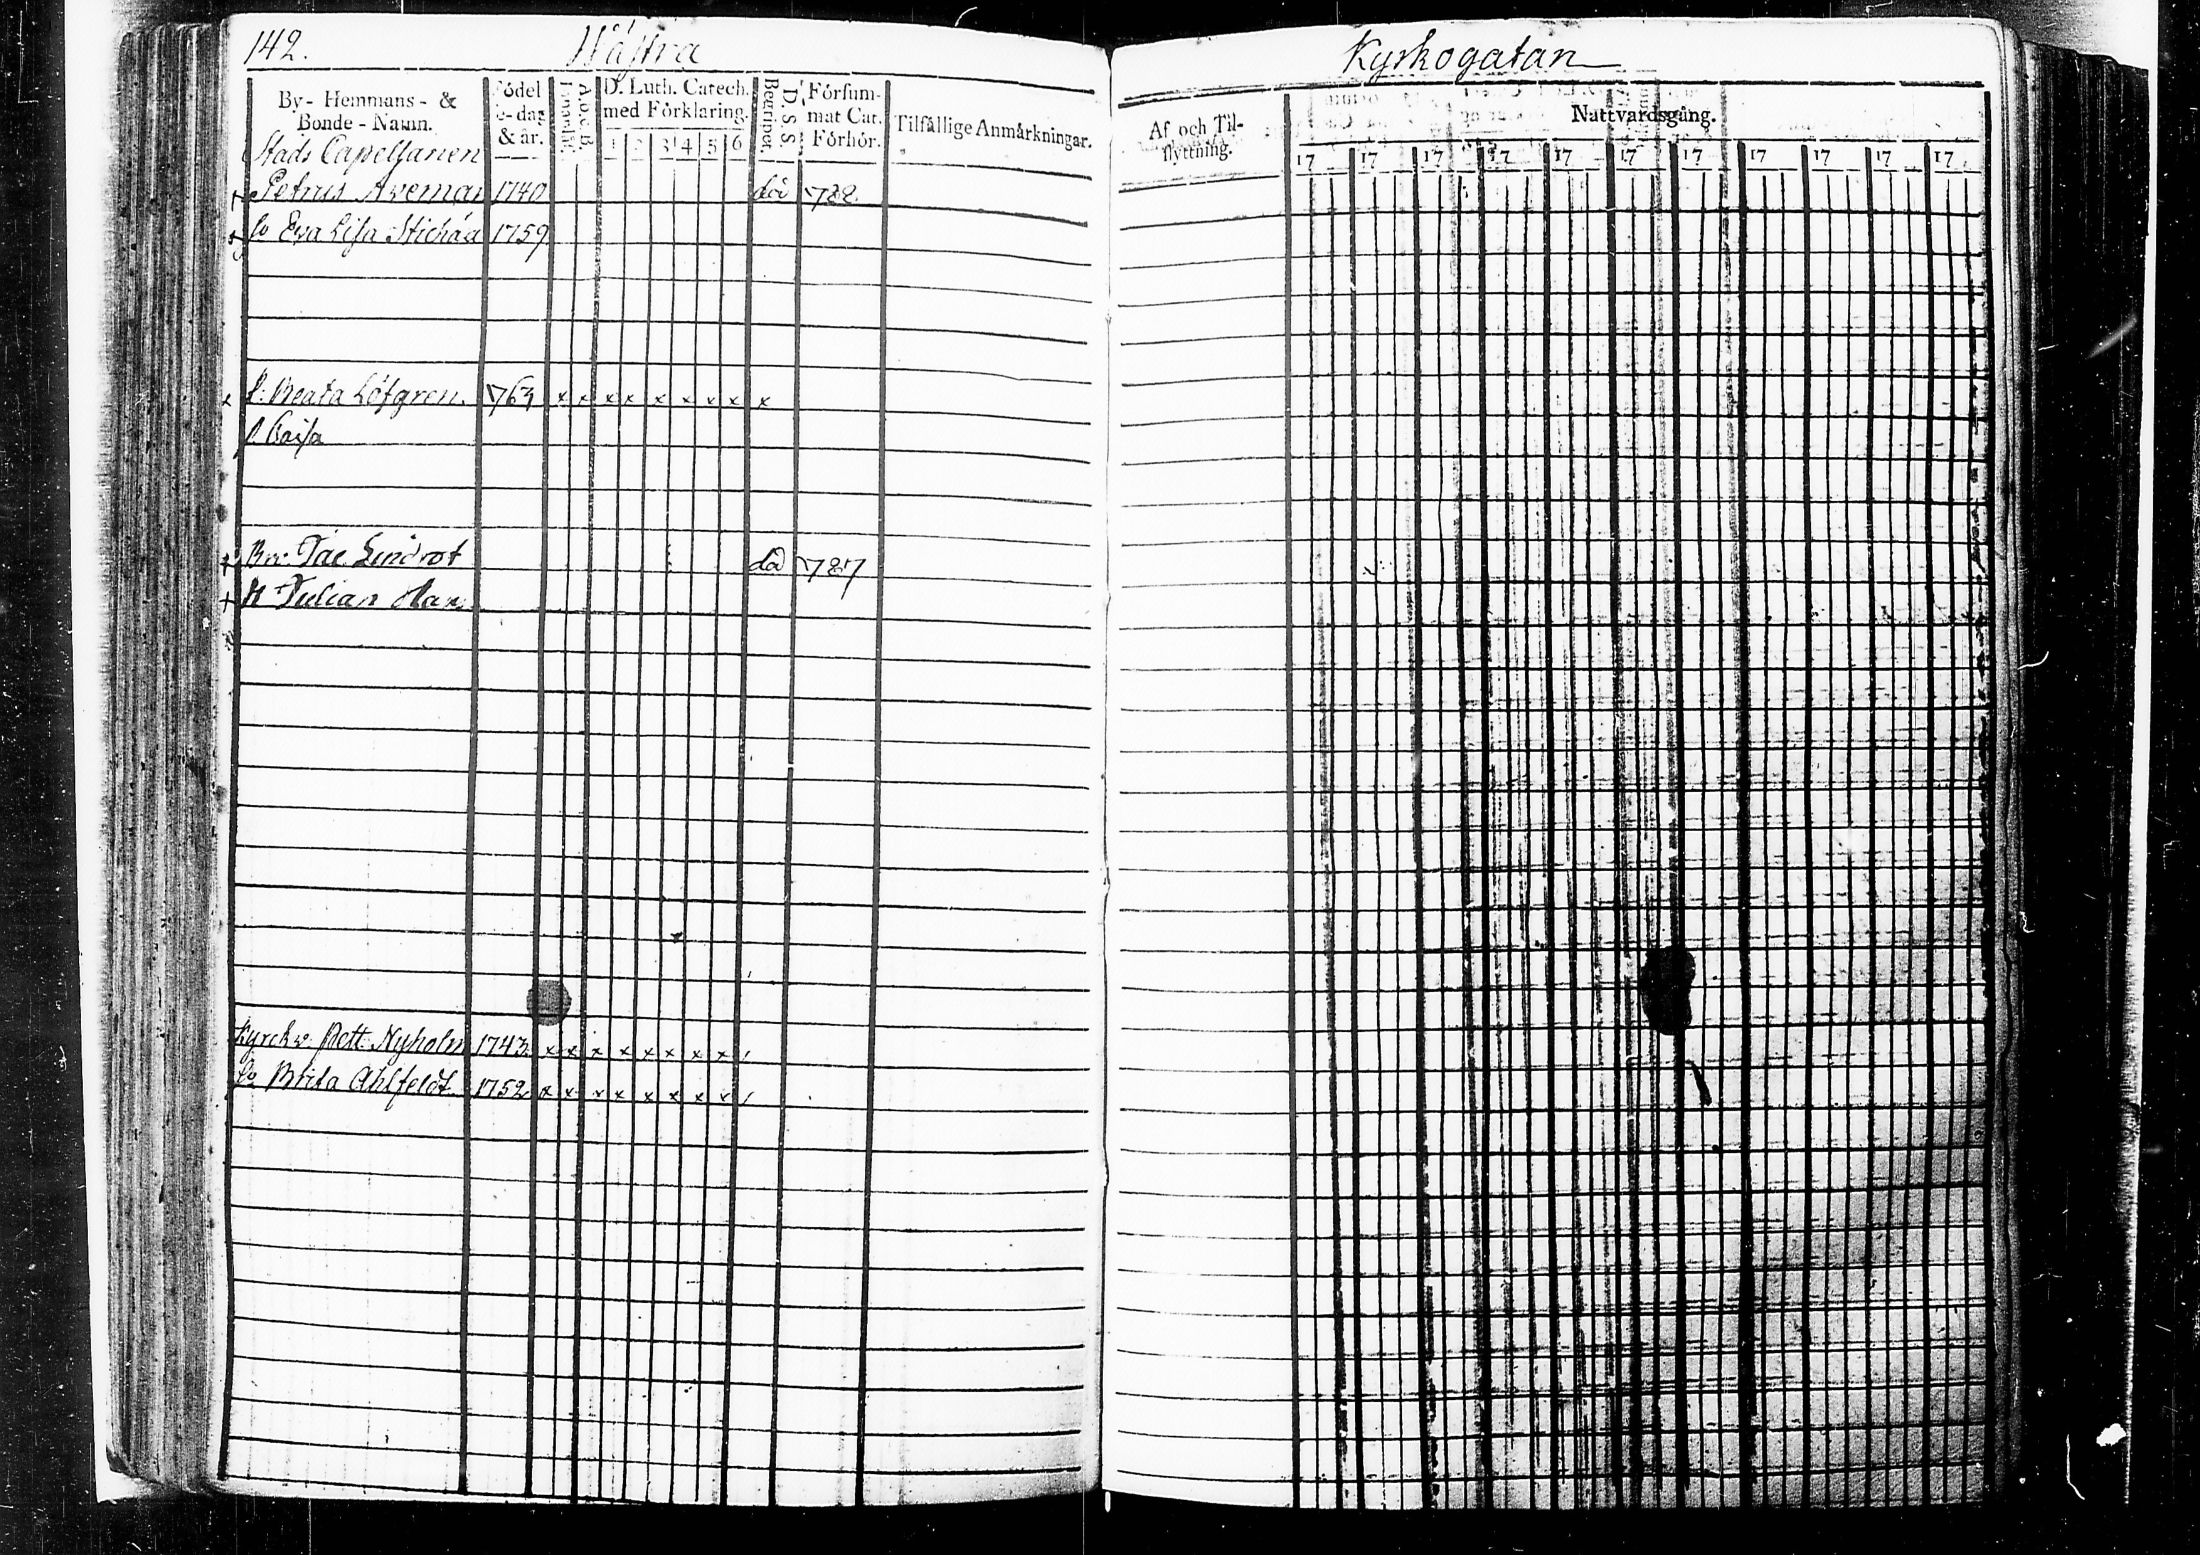 142. Wästra
By- Hemmans- &
Bonde-Namn.
Födel
se-dag
& år.
Innanläs.
A. boc B.
D. Luth. Catech.
med Förklaring.
1 2 3 4 5 6
Begripet.
D. S. S.
Försum-
mat Cat.
Förhör.
Tilfällige Anmärkningar.
Stads Capellanen
Petrus Aveman 1740 död 788
h. Eva Lisa 1759
p. Beata Löfgren. 763 x x x x x x x x x
p Caisa
Br: Jac. Lindrot död 787
H Julian
Kyrckv. Pett. Nyholm 1743 x x x x x x x x
h. Brita Ahlfeldt 1752 x x x x x x x x
Kyrkogatan
Af och Til-
flyttning.
Nattvardsgång.
17 17 17 17 17 17 17 17 17 17 17